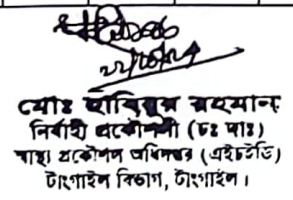 ২২/০৮/২৪
মোঃ হাবিবুর রহমান
নির্বাহী প্রকৌশলী (চঃ দাঃ)
স্বাস্থ্য প্রকৌশল অধিদপ্তর (এইচইডি)
টাংগাইল বিভাগ, টাংগাইল।